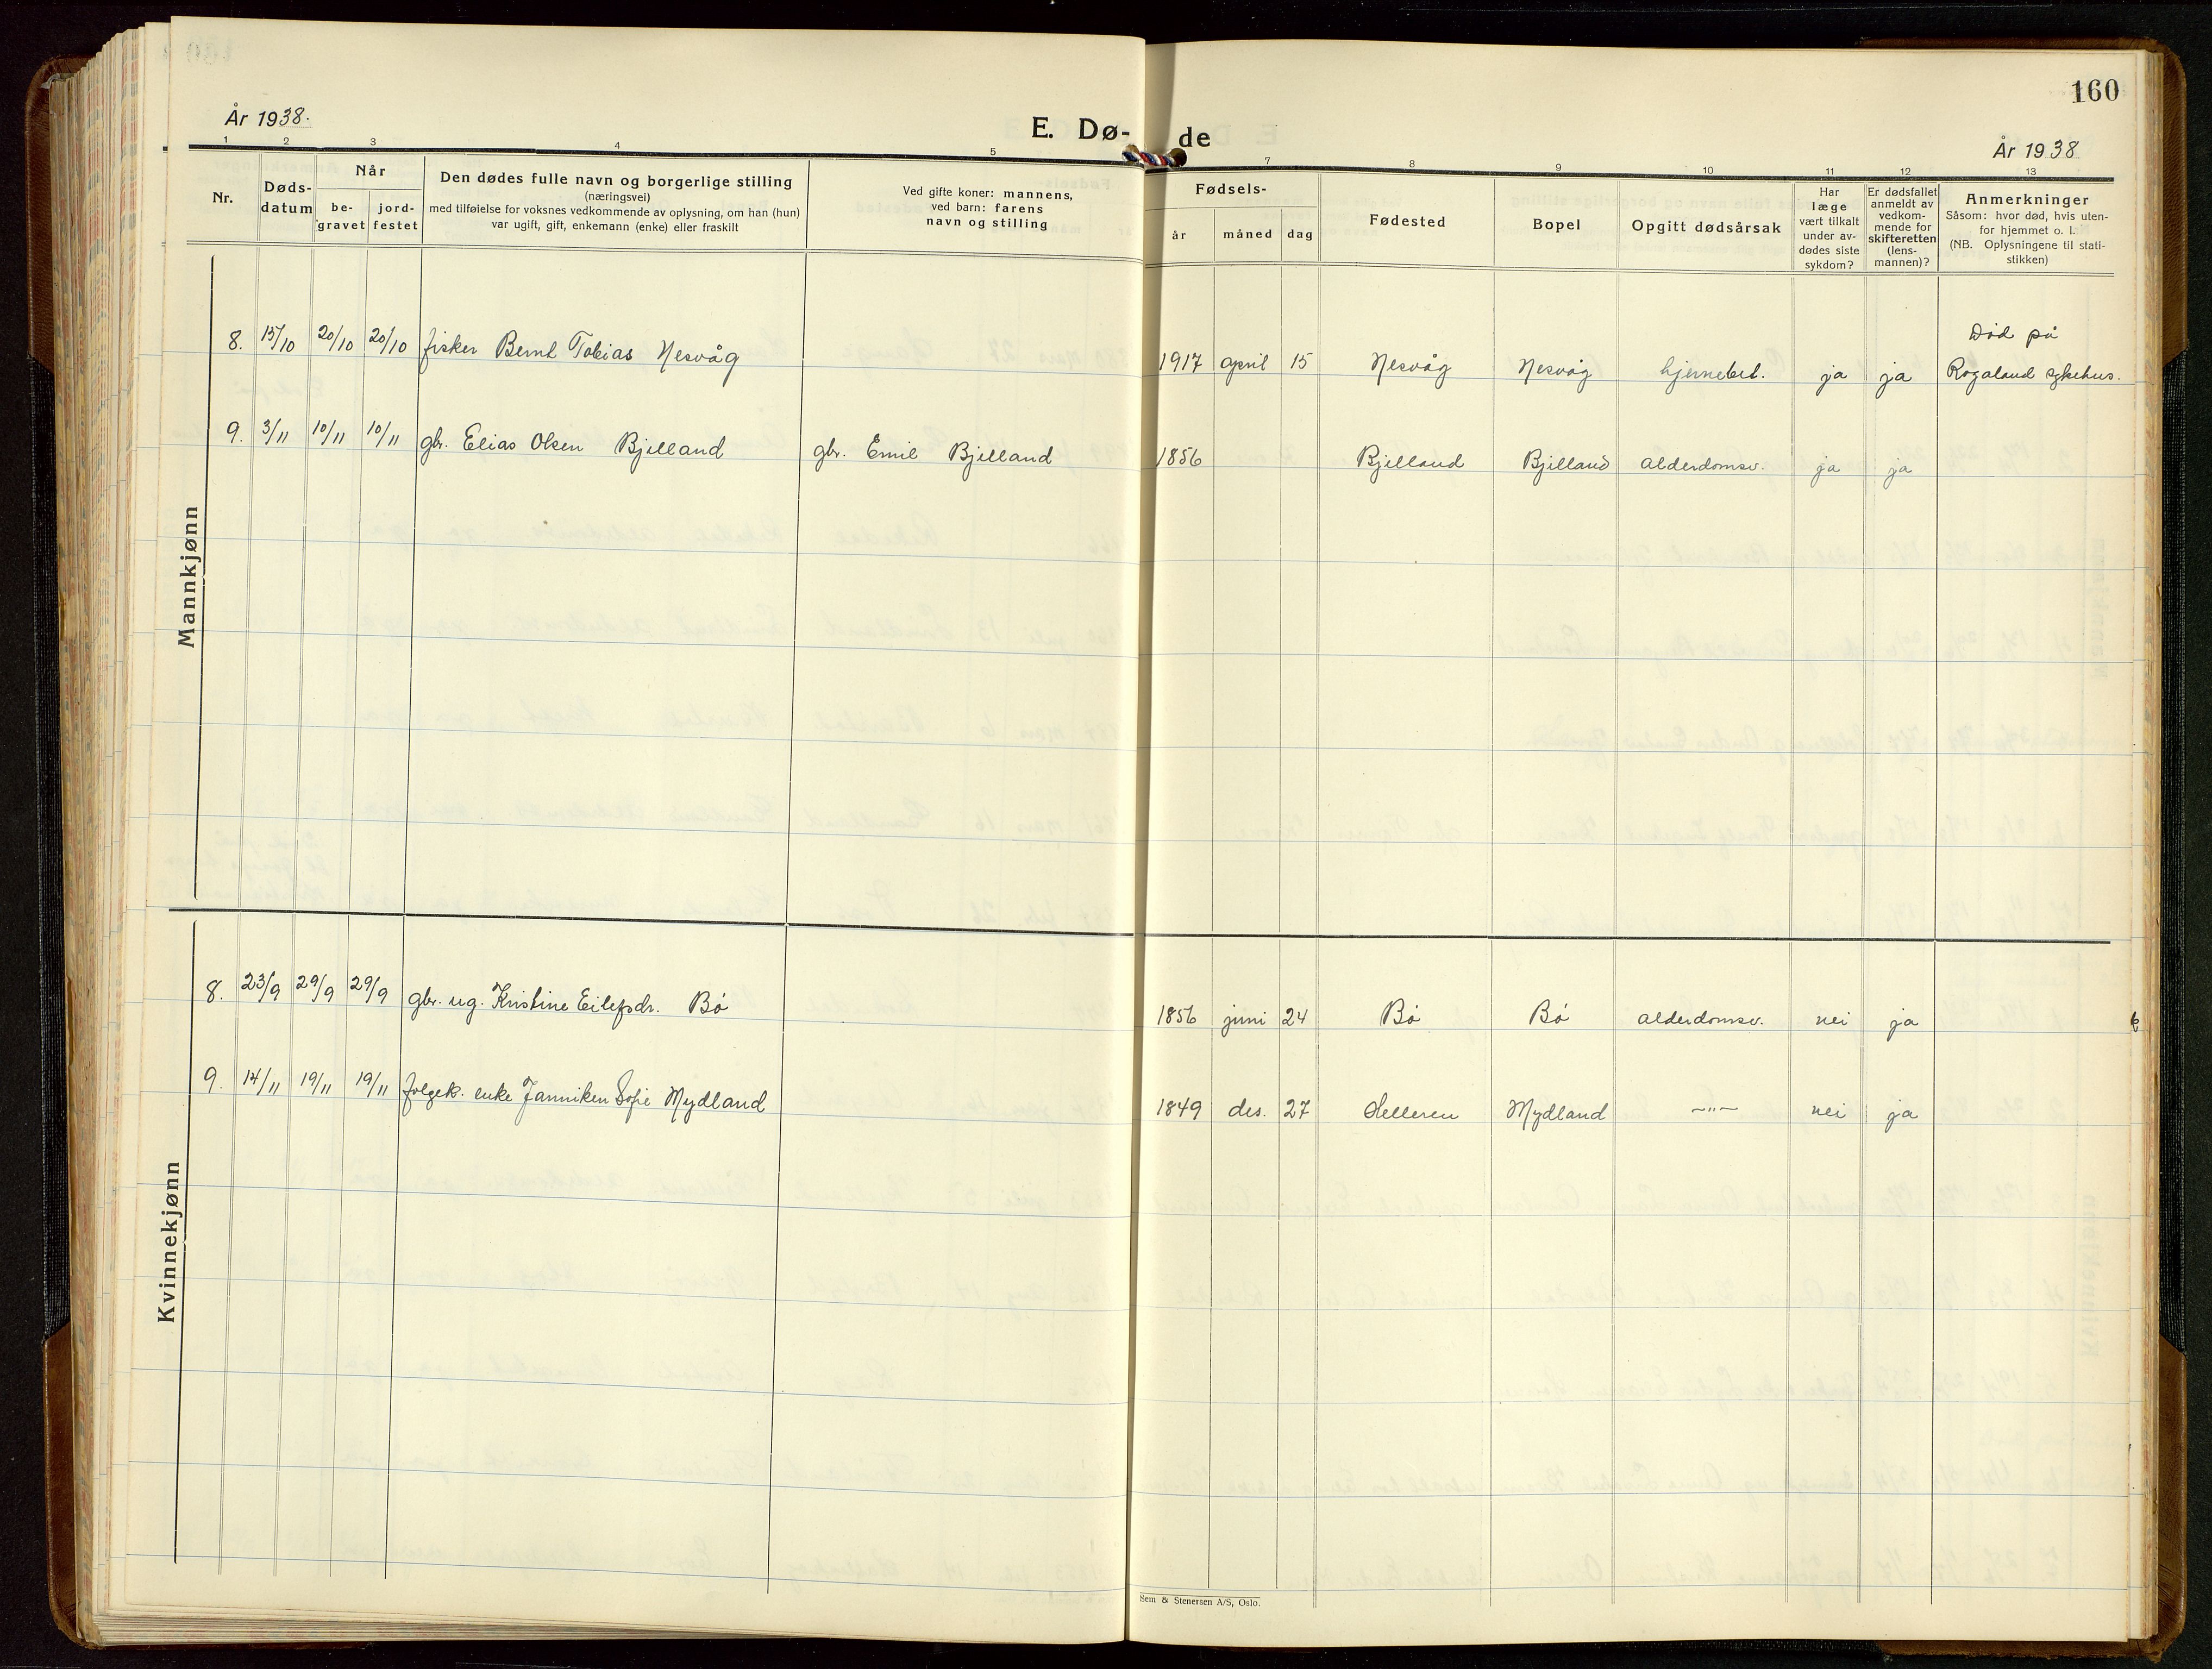 160
År 1938.
E. Dø- de
År 1938
1 2 3 4 5 7 8 9 10 11 12 13
Nr.
Døds-
datum
Når
be-
gravet
jord-
festet
Den dødes fulle navn og borgerlige stilling
(næringsvei)
med tilføielse for voksnes vedkommende av oplysning, om han (hun)
var ugift, gift, enkemann (enke) eller fraskilt
Ved gifte koner: mannens,
ved barn: farens
navn og stilling
Fødsels-
år måned dag
Fødested
Bopel
Opgitt dødsårsak
Har
læge
vært tilkalt
under av-
dødes siste
sykdom?
Er dødsfallet
anmeldt av
vedkom-
mende for
skifteretten
(lens-
mannen)?
Anmerkninger
Såsom: hvor død, hvis uten-
for hjemmet o. l.
(NB. Oplysningene til stati-
stikken)
Mannkjønn
8. 15/10 20/10 20/10 fisker Bernt Tobias Nesvåg 1917 april 15 Nesvåg Nesvåg hjernebet. ja ja Død på
Rogaland sykehus.
9. 3/11 10/11 10/11 gbr. Elias Olsen Bjelland gbr. Emil Bjelland 1856 Bjelland Bjelland alderdomsv. ja ja
Kvinnekjønn
8. 23/9 29/9 29/9 gbr. ug. Kristine Eilefsdr. Bø 1856 juni 24 Bø Bø alderdomsv. nei ja
9. 14/11 19/11 19/11 folgek. enke Janniken Sofie Mydland 1849 des. 27 Helleren Mydland —"— nei ja
Sem & Stenersen A/S, Oslo.